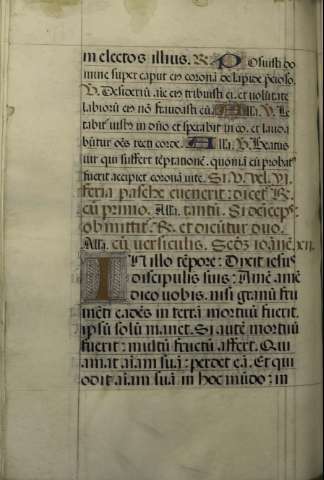 in electos illius. R. Posuisti do
mine super caput eiꝰ coronā de lapide p̄cioso.
V. Desideriū aīe eiꝰ tribuisti ei: et volūtate
labiorū eiꝰ nō fraudasti eū. Alla. V. Le
tabit iustꝰ in dn̄o et sperabit in eo. et lauda
būtur oēs recti corde. Alla. V. Beatus
uir qui suffert tēptationē. quoniā cū probatꝰ
fuerit accipiet coronā uite. Si V. vel. VI.
feria pasche euenerit: dicet R.
cū primo. Alla. tantū. Si deīceps:
obmittit R. et dicūtur duo.
Alla. cū versiculis. Scdȝ ioānē. xii.
In illo tēpore: Dixit iesus
discipulis suis: Amē amē
dico vobis. nisi granū fru
mēti cadēs in terrā mortuū fuerit.
ipsū solū manet. Si autē mortuū
fuerit: multū fructū affert. Qui
amat aīam suā: perdet eā. Et qui
odit aīam suā in hoc mūdo: in